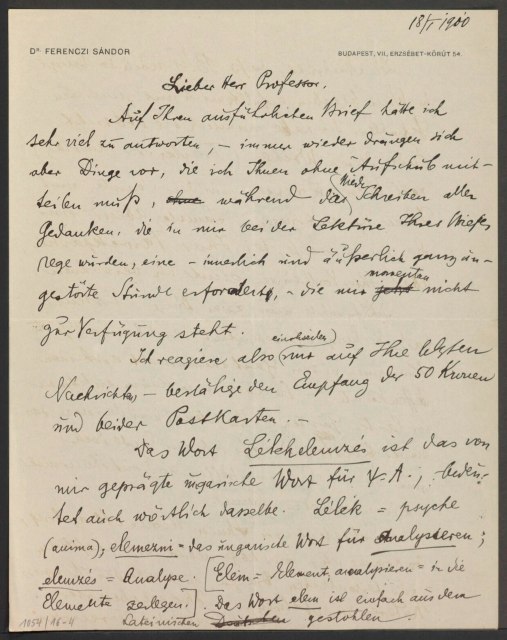 18/I 1900
Dr. FERENCZI SÁNDOR
BUDAPEST, VII., ERZSÉBET-KÖRÚT 54.
Lieber Herr Professor,
Auf Ihren ausführlichen Brief hätte ich
sehr viel zu antworten, – immer wieder drängen sich
aber Dinge vor, die ich Ihnen ohne Aufschub mit-
teilen muß, ohne während das Niederschreiben aller
Gedanken, die in mir bei der Lektüre Ihres Briefes
rege wurden, eine – innerlich und äußerlich ganz un-
gestörte Stunde erfordert, – die mir jetzt momentan nicht
zur Verfügung steht.
Ich reagiere also (einstweilen) nur auf Ihre letzten
Nachrichten, – bestätige den Empfang der 50 Kronen
und beider Postkarten. –
Das Wort Lélekelemzés ist das von
mir geprägte ungarische Wort für Ψ-A.; bedeu-
tet auch wörtlich dasselbe. Lélek = psyche
(anima); elemezni = das ungarische Wort für Analysieren;
elemzés = Analyse. [Elem = Element, analysieren = in die
Elemente zerlegen.] Das Wort elem ist einfach aus dem
Lateinischen gestohlen.
1054/16-4